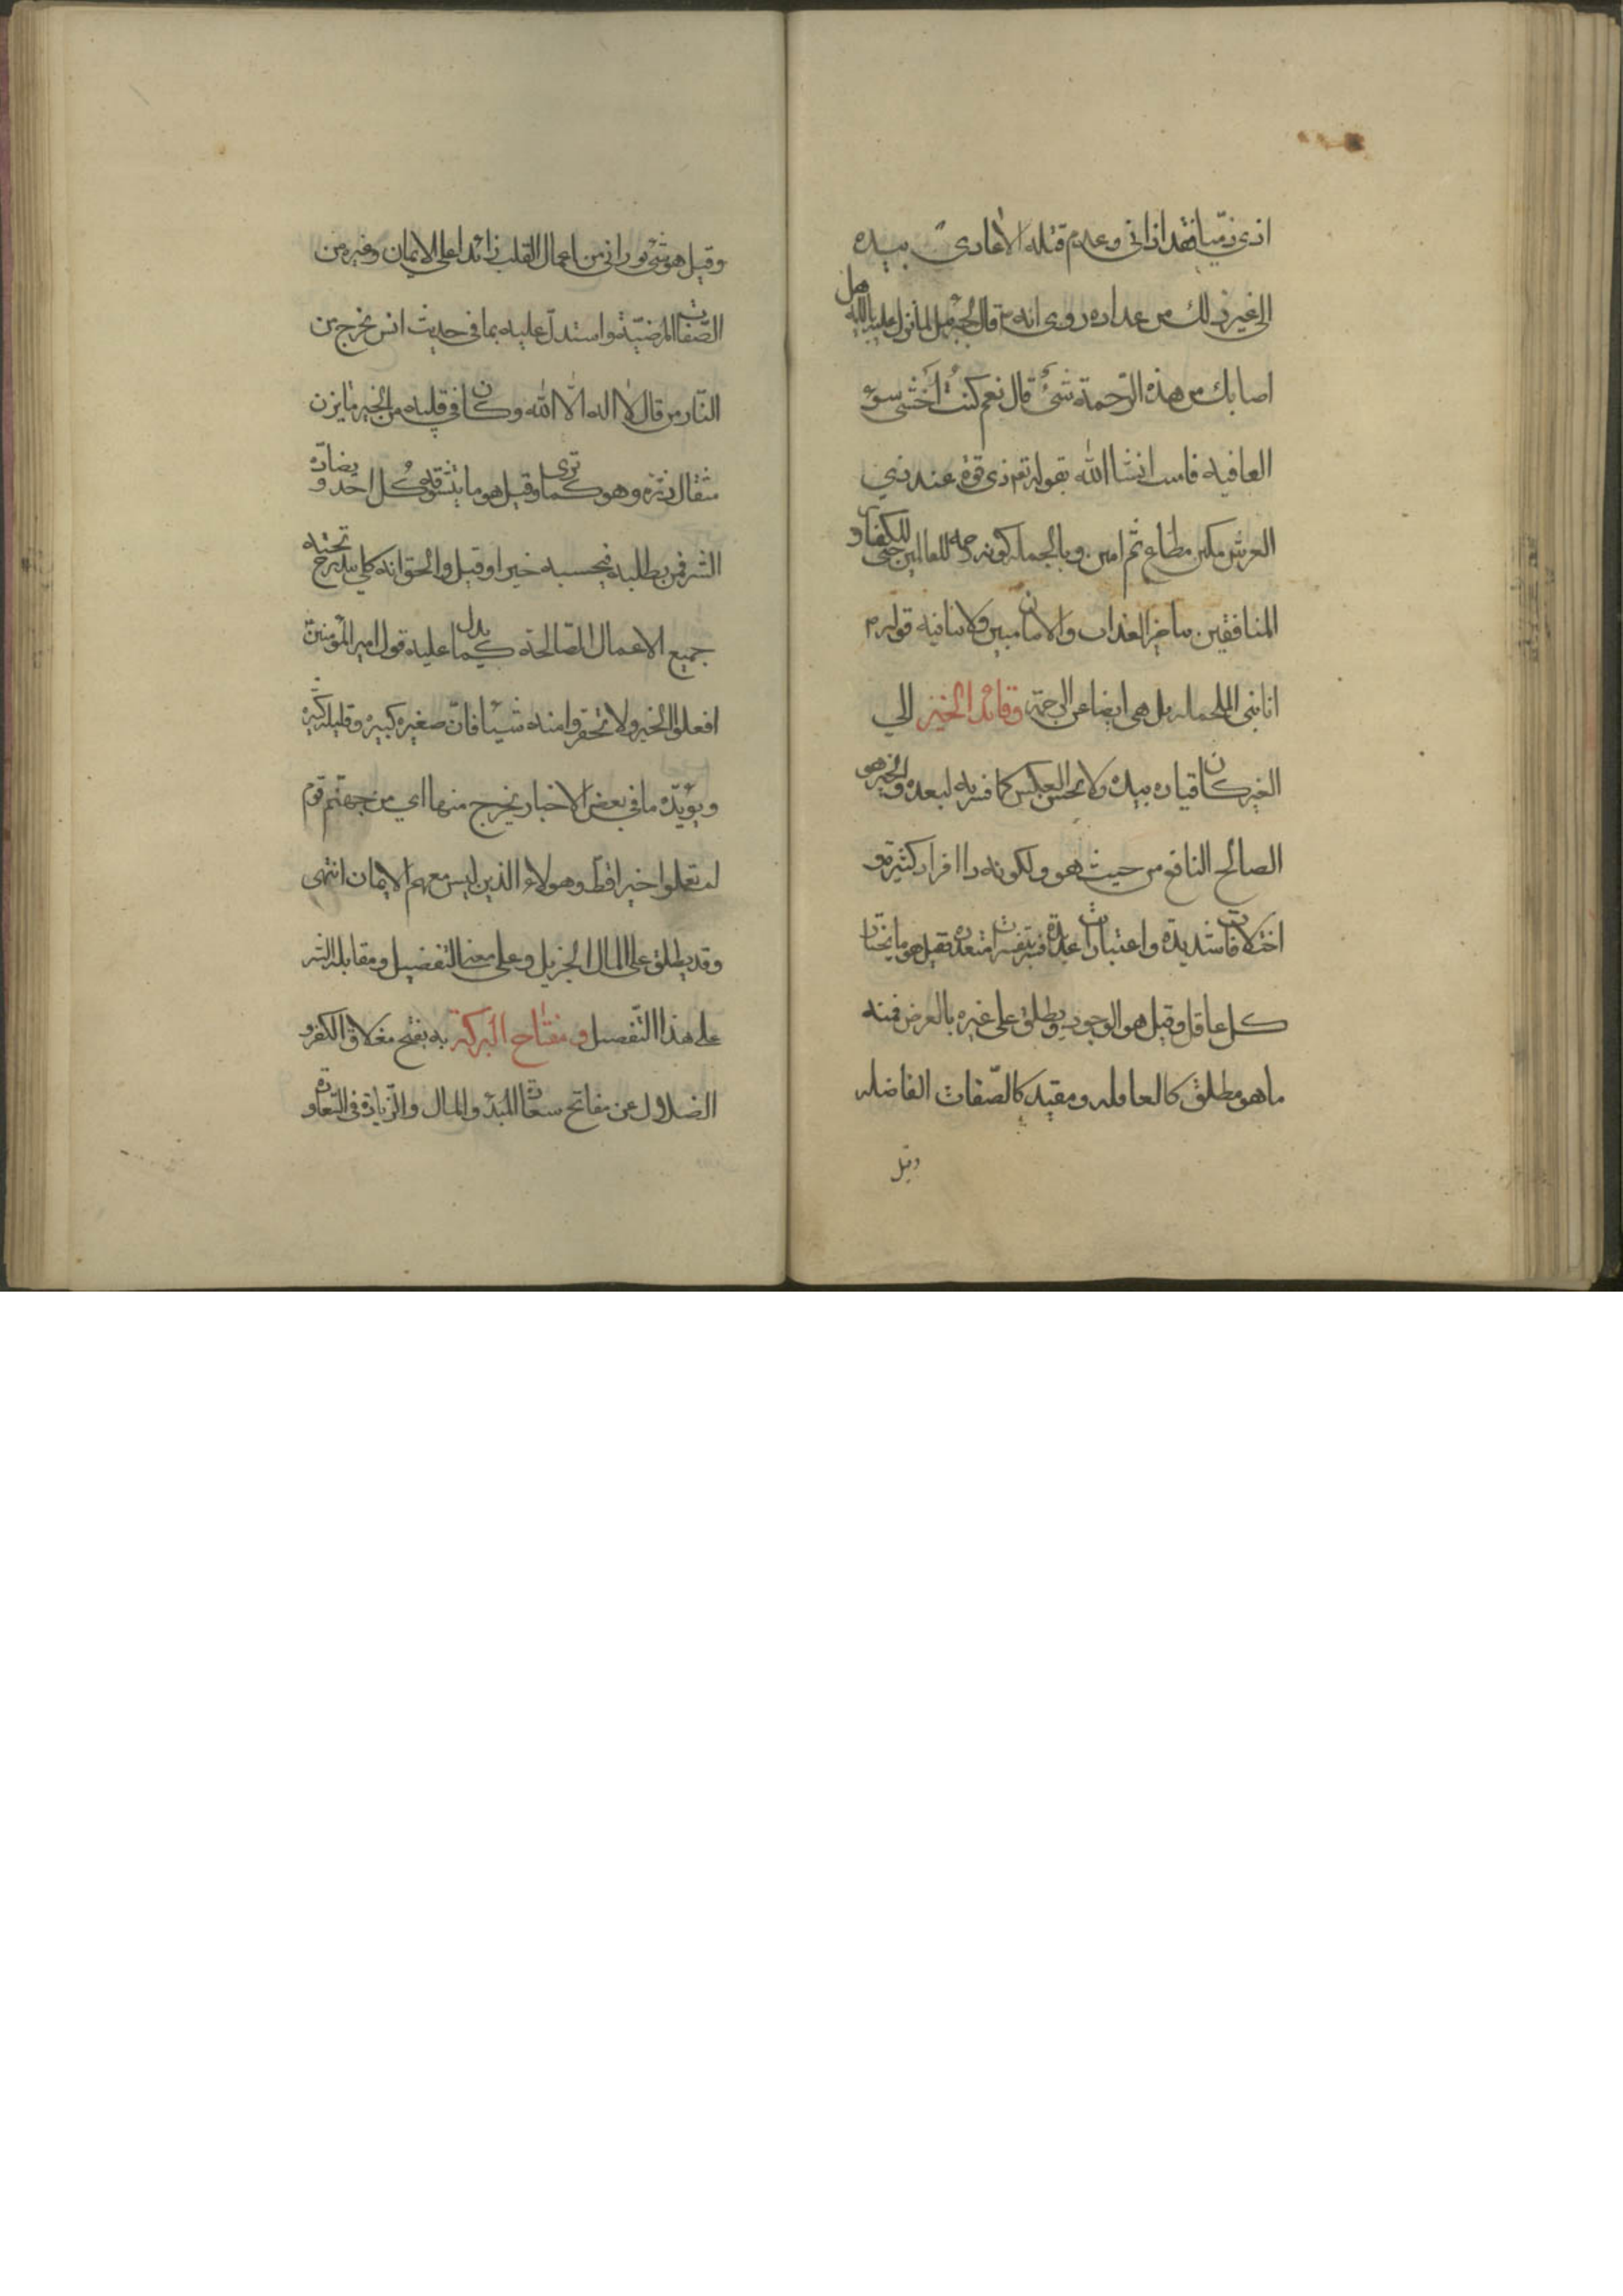 اذى ذميا فقد اذانى وعدم قتله الاعادى بيده
الى غير ذلك من عداده روى انه قال لجبرئيل لما نزل عليه بالآية هل
اصابك من هذه الرحمة شئ قال نعم كنت أخشى سوء
العاقبه فامنت انشا الله بقوله تعم ذى قوة عند ذي
العرش مكين مطاع ثم امين وبالجمله كونه رحمه للعالمين حتى للكفار و
المنافقين بتاخير العذاب والامان مبين ولا ينافيه قوله م
انا نبى الملحمه بل هى ايضا عن الرحمة وقائد الخير الي
الغير كان قياده بيده ولا يحسن العكس كما فسر به لبعده والخير هو
الصالح النافع من حيث هو ولكونه ذا افراد كثيرة و
اختلافات شديدة واعتبارات عديدة فسر بتفسيرات متعدده فقيل هو ما يختار
كل عاقل وقيل هو الوجود ويطلق على غيره بالعرض فمنه
ما هو مطلق كالعاقله ومقيد كالصفات الفاضله
وقيل
وقيل هو شئ نورانى من اعمال القلب زائدا على الايمان وغيره من
الصفات المرضية واستدل عليه بما فى حديث انس يخرج من
النار من قال لا اله الا الله وكان فى قلبه من الخير ما يزن
مثقال ذرة وهو كما ترى وقيل هو ما يتشوقه كل احد و يضاده
الشر فمن يطلبه فيحسبه خيرا وقيل والحق انه كلى يندرج تحته
جميع الاعمال الصالحة كما يدل عليه قول امير المؤمنين
افعلوا الخير ولا تحقروا منه شيئا فان صغيره كبير وقليله كثير
ويؤيده ما فى بعض الاخبار يخرج منها اي من جهنم قوم
لم تعملوا خيرا قط وهولاء الذين ليس معهم الا الايمان انتهى
وقد يطلق على المال الجزيل وعلى معنى التفضيل ومقابله الشر
على هذا التفصيل ومفتاح البركة به يفتح مغلاق الكفر و
الضلال عن مفاتح سعادة المبدء والمال والزيادة فى السعادة و